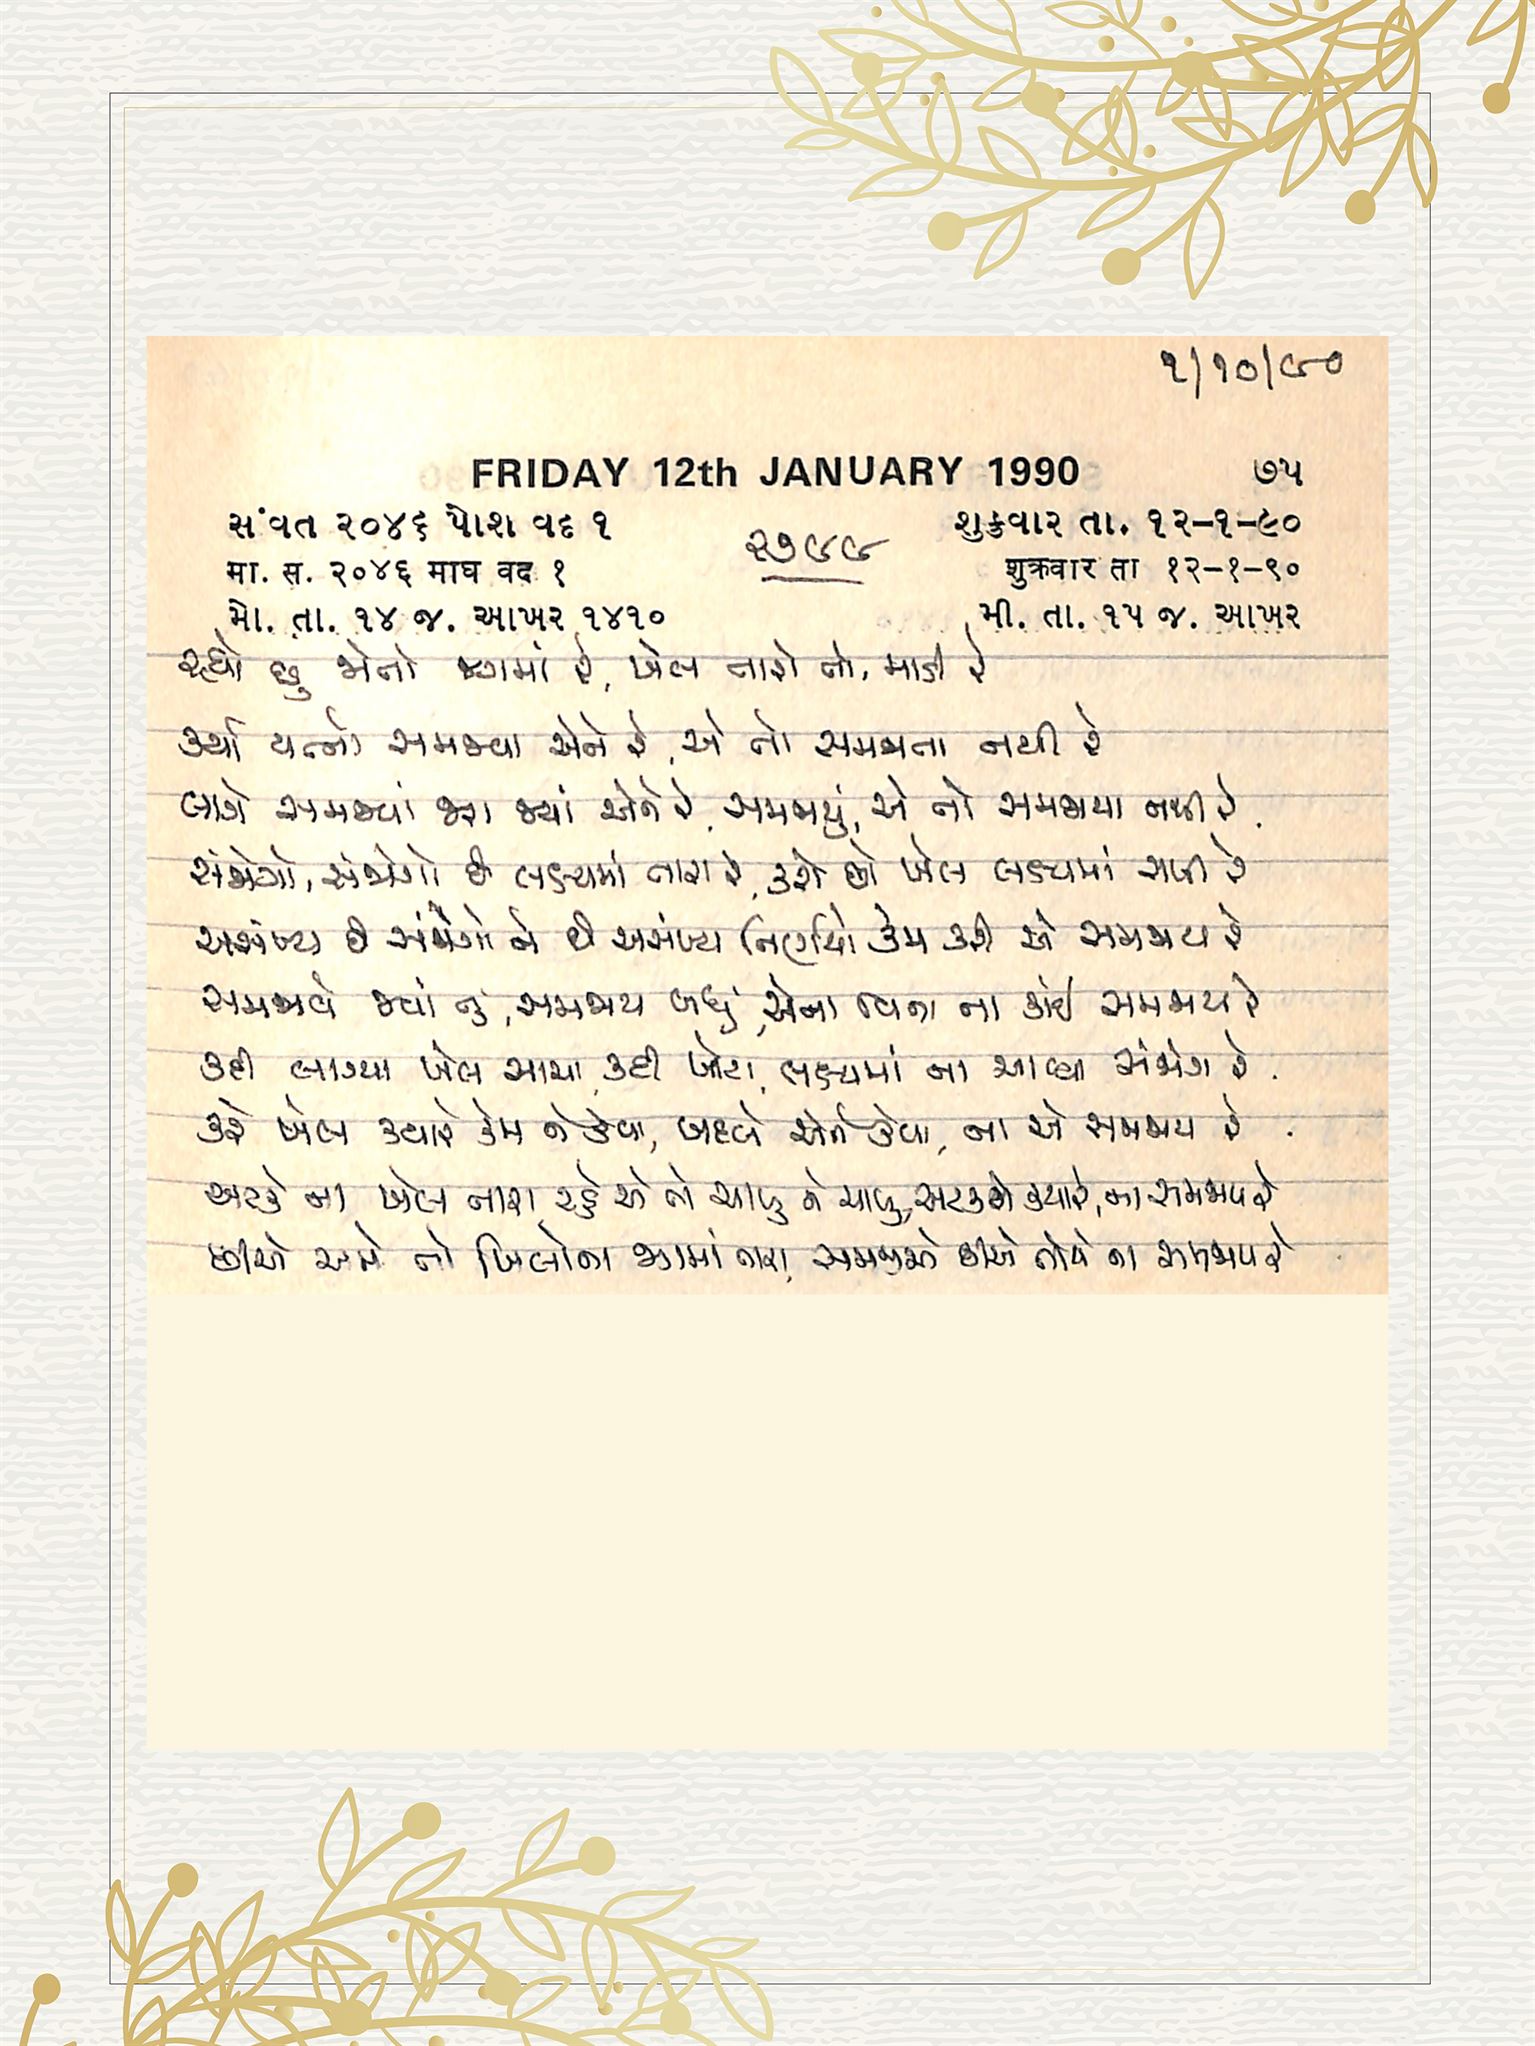 ૧/૧૦/૯૦
FRIDAY 12th JANUARY 1990 ૭૫
સંવત ૨૦૪૬ પોશ વદ ૧ ૨૭૯૯ શુક્રવાર તા. ૧૨-૧-૯૦
मा. स. २०४६ माघ वद १ शुक्रवार ता १२-१-९०
મો. તા. ૧૪ જ. આખર ૧૪૧૦ મી. તા. ૧૫ જ. આખર
રહ્યો છુ જોતો જગમાં રે, ખેલ તારો તો, માડી રે
કર્યા યત્નો સમજવા એને રે, એ તો સમજાતા નથી રે
લાગે સમજ્યાં જરા જ્યાં એને રે, સમજાયું, એ તો સમજાયા નથી રે.
સંજોગો, સંજોગો છે લક્ષ્યમાં તારા રે, કરે છે ખેલ લક્ષ્યમાં રાખી રે
અસંખ્ય છે સંજોગો ને છે અસંખ્ય નિર્ણયો કેમ કરી એ સમજાય રે
સમજાવે જ્યાં તું, સમજાય બધું, એના વિના ના કાંઈ સમજાય રે
કદી લાગ્યા ખેલ સાચા, કદી ખોટા, લક્ષ્યમાં ના આવ્યા સંજોગ રે.
કરે ખેલ ક્યારે કેમ ને કેવા, બદલે એને કેવા, ના એ સમજાય રે.
અટકે ના ખેલ તારા રહે એ તો ચાલુ ને ચાલુ, અટકશે ક્યારે, ના સમજાય રે
છીએ અમે તો ખિલોના જગમાં તારા, સમજીએ છીએ તોયે ના સમજાય રે